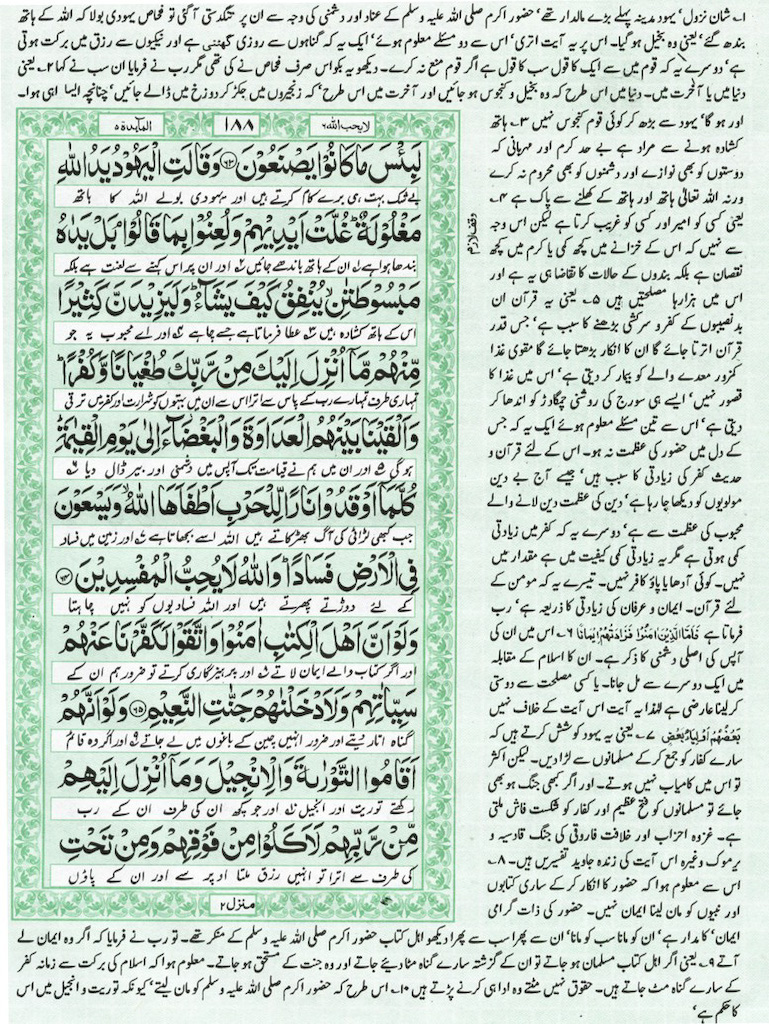 ۱۔ شان نزول' یہود مدینہ پہلے بڑے مالدار تھے' حضور اکرم صلی اللہ علیہ وسلم کے عناد اور دشمنی کی وجہ سے ان پر تنگدستی آگئی تو فحاص یہودی بولا کہ اللہ کے ہاتھ
بندھ گئے' یعنی وہ بخیل ہو گیا۔ اس پر یہ آیت اتری' اس سے دو مسئلے معلوم ہوئے' ایک یہ کہ گناہوں سے روزی گھٹتی ہے اور نیکیوں سے رزق میں برکت ہوتی
ہے' دوسرے یہ کہ قوم میں سے ایک کا قول سب کا قول ہے اگر قوم منع نہ کرے۔ دیکھو یہ بکواس صرف فحاص نے کی تھی مگر رب نے فرمایا ان سب نے کہا ۲۔ یعنی
دنیا میں یا آخرت میں۔ دنیا میں اس طرح کہ وہ بخیل و کنجوس ہو جائیں اور آخرت میں اس طرح' کہ زنجیروں میں جکڑ کر دوزخ میں ڈالے جائیں' چنانچہ ایسا ہی ہوا۔
لایحب اللہ ۶
۱۸۸
المآیدۃ ۵
لَبِئْسَ مَا كَانُوْا يَصْنَعُوْنَ ﴿۶۳﴾ وَقَالَتِ الْيَهُوْدُ يَدُ اللّٰهِ
بے شک بہت ہی برے کام کرتے ہیں اور یہودی بولے اللہ کا ہاتھ
مَغْلُوْلَةٌ ؕ غُلَّتْ اَيْدِيْهِمْ وَلُعِنُوْا بِمَا قَالُوْا ۘ بَلْ يَدٰهُ
بندھا ہوا ہے ۱ ان کے ہاتھ باندھے جائیں ۲ اور ان پر اس کہنے سے لعنت ہے بلکہ
مَبْسُوْطَتٰنِ ۙ يُنْفِقُ كَيْفَ يَشَآءُ ؕ وَلَيَزِيْدَنَّ كَثِيْرًا
اس کے ہاتھ کشادہ ہیں ۳ عطا فرماتا ہے جسے چاہے ۴ اور اے محبوب یہ جو
مِّنْهُمْ مَّاۤ اُنْزِلَ اِلَيْكَ مِنْ رَّبِّكَ طُغْيَانًا وَّكُفْرًا ؕ
تمہاری طرف تمہارے رب کے پاس سے اترا اس سے ان میں بہتوں کو شرارت اور کفر میں ترقی
وَاَلْقَيْنَا بَيْنَهُمُ الْعَدَاوَةَ وَالْبَغْضَآءَ اِلٰى يَوْمِ الْقِيٰمَةِ ؕ
ہوگی ۵ اور ان میں ہم نے قیامت تک آپس میں دشمنی اور بیر ڈال دیا ۶
كُلَّمَاۤ اَوْقَدُوْا نَارًا لِّلْحَرْبِ اَطْفَاَهَا اللّٰهُ ۙ وَيَسْعَوْنَ
جب کبھی لڑائی کی آگ بھڑکاتے ہیں اللہ اسے بجھاتا ہے ۷ اور زمین میں فساد
فِى الْاَرْضِ فَسَادًا ؕ وَاللّٰهُ لَا يُحِبُّ الْمُفْسِدِيْنَ ﴿۶۴﴾
کے لئے دوڑتے پھرتے ہیں اور اللہ فسادیوں کو نہیں چاہتا
وَلَوْ اَنَّ اَهْلَ الْكِتٰبِ اٰمَنُوْا وَاتَّقَوْا لَكَفَّرْنَا عَنْهُمْ
اور اگر کتاب والے ایمان لاتے ۸ اور پرہیزگاری کرتے تو ضرور ہم ان کے
سَيِّاٰتِهِمْ وَلَاَدْخَلْنٰهُمْ جَنّٰتِ النَّعِيْمِ ﴿۶۵﴾ وَلَوْ اَنَّهُمْ
گناہ اتار دیتے اور ضرور انہیں چین کے باغوں میں لے جاتے ۹ اور اگر وہ قائم
اَقَامُوا التَّوْرٰىةَ وَالْاِنْجِيْلَ وَمَاۤ اُنْزِلَ اِلَيْهِمْ
رکھتے توریت اور انجیل ۱۰ اور جو کچھ ان کی طرف ان کے رب
مِّنْ رَّبِّهِمْ لَاَكَلُوْا مِنْ فَوْقِهِمْ وَمِنْ تَحْتِ
کی طرف سے اترا تو انہیں رزق ملتا اوپر سے اور ان کے پاؤں
منزل ۲
وقف لازم
اور ہو گا' یہود سے بڑھ کر کوئی قوم کنجوس نہیں ۳۔ ہاتھ
کشادہ ہونے سے مراد ہے بے حد کرم اور مہربانی کہ
دوستوں کو بھی نوازے اور دشمنوں کو بھی محروم نہ کرے
ورنہ اللہ تعالیٰ ہاتھ اور ہاتھ کے کھلنے سے پاک ہے ۴۔
یعنی کسی کو امیر اور کسی کو غریب کرتا ہے لیکن اس وجہ
سے نہیں کہ اس کے خزانے میں کچھ کمی یا کرم میں کچھ
نقصان ہے بلکہ بندوں کے حالات کا تقاضا ہی یہ ہے اور
اس میں ہزارہا مصلحتیں ہیں ۵۔ یعنی یہ قرآن ان
بدنصیبوں کے کفر و سرکشی بڑھنے کا سبب ہے' جس قدر
قرآن اترتا جائے گا ان کا انکار بڑھتا جائے گا مقوی غذا
کمزور معدے والے کو بیمار کر دیتی ہے' اس میں غذا کا
قصور نہیں' ایسے ہی سورج کی روشنی چمگادڑ کو اندھا کر
دیتی ہے' اس سے تین مسئلے معلوم ہوئے ایک یہ کہ جس
کے دل میں حضور کی عظمت نہ ہو۔ اس کے لئے قرآن و
حدیث کفر کی زیادتی کا سبب ہیں' جیسے آج بے دین
مولویوں کو دیکھا جا رہا ہے' دین کی عظمت دین لانے والے
محبوب کی عظمت سے ہے' دوسرے یہ کہ کفر میں زیادتی
کمی ہوتی ہے مگر یہ زیادتی کمی کیفیت میں ہے مقدار میں
نہیں۔ کوئی آدھا یا پاؤ کافر نہیں۔ تیسرے یہ کہ مومن کے
لئے قرآن۔ ایمان و عرفان کی زیادتی کا ذریعہ ہے' رب
فرماتا ہے فَاَمَّا الَّذِيْنَ اٰمَنُوْا فَزَادَتْهُمْ اِيْمَانًا ۶۔ اس میں ان کی
آپس کی اصلی دشمنی کا ذکر ہے۔ ان کا اسلام کے مقابلہ
میں ایک دوسرے سے مل جانا۔ یا کسی مصلحت سے دوستی
کر لینا عارضی ہے لہٰذا یہ آیت اس آیت کے خلاف نہیں
بَعْضُهُمْ اَوْلِيَآءُ بَعْضٍ ۷۔ یعنی یہ یہود کوشش کرتے ہیں کہ
سارے کفار کو جمع کر کے مسلمانوں سے لڑا دیں۔ لیکن اکثر
تو اس میں کامیاب نہیں ہوتے۔ اور اگر کبھی جنگ ہو بھی
جائے تو مسلمانوں کو فتح عظیم اور کفار کو شکست فاش ملتی
ہے۔ غزوہ احزاب اور خلافت فاروقی کی جنگ قادسیہ و
یرموک وغیرہ اس آیت کی زندہ جاوید تفسیریں ہیں۔ ۸۔
اس سے معلوم ہوا کہ حضور کا انکار کر کے ساری کتابوں
اور نبیوں کو مان لینا ایمان نہیں۔ حضور کی ذات گرامی
ایمان' کا مدار ہے' ان کو مانا سب کو مانا' ان سے پھرا سب سے پھرا دیکھو اہل کتاب حضور اکرم صلی اللہ علیہ وسلم کے منکر تھے۔ تو رب نے فرمایا کہ اگر وہ ایمان لے
آتے ۹۔ یعنی اگر اہل کتاب مسلمان ہو جاتے تو ان کے گزشتہ سارے گناہ مٹا دیئے جاتے اور وہ جنت کے مستحق ہو جاتے۔ معلوم ہوا کہ اسلام کی برکت سے زمانہ کفر
کے سارے گناہ مٹ جاتے ہیں۔ حقوق نہیں مٹتے وہ ادا ہی کرنے پڑتے ہیں ۱۰۔ اس طرح کہ حضور اکرم صلی اللہ علیہ وسلم کو مان لیتے' کیونکہ توریت و انجیل میں اس
کا حکم ہے'